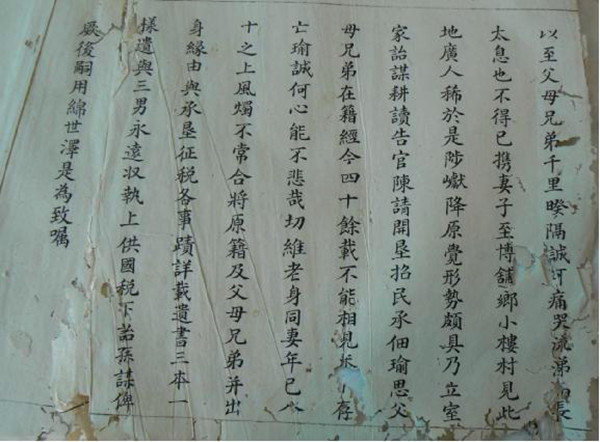 以至父母兄弟千里暌隔誠可痛哭流涕而長
太息也不得已携妻子至博舖鄉小樓村見此
地廣人稀於是陟巘降原覺形勢頗具乃立室
家詒謀耕讀告官陳請開墾招民承佃瑜思父
母兄弟在籍經今四十餘載不能相見存
亡瑜誠何心能不悲哉切維老身同妻年已
十之上風燭不常合將原籍及父母兄弟并出
身緣由與承墾征税各事蹟詳載遺書三本一
樣遺與三男永遠収執上供國税下詒孫謀俾
厥後嗣用綿世澤是為致囑